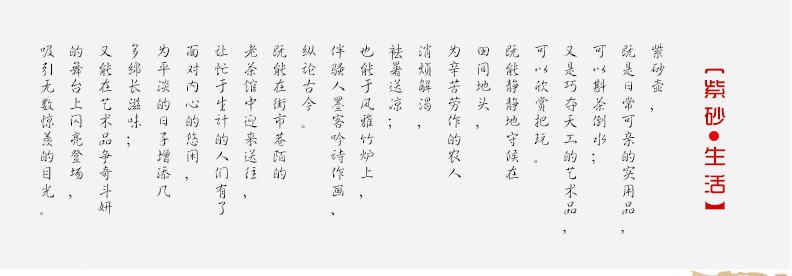 【紫砂•生活】
紫砂壶，
既是日常可亲的实用品，
可以斟茶倒水；
又是巧夺天工的艺术品，
可以欣赏把玩。
既能静静地守候在
田间地头，
为辛苦劳作的农人
消烦解渴，
祛暑送凉；
也能于风雅竹炉上，
伴骚人墨客吟诗作画、
纵论古今。
既能在街市巷陌的
老茶馆中迎来送往，
让忙于生计的人们有了
面对内心的悠闲，
为平淡的日子增添几
多绵长滋味；
又能在艺术品争奇斗妍
的舞台上闪亮登场，
吸引无数惊羡的目光。